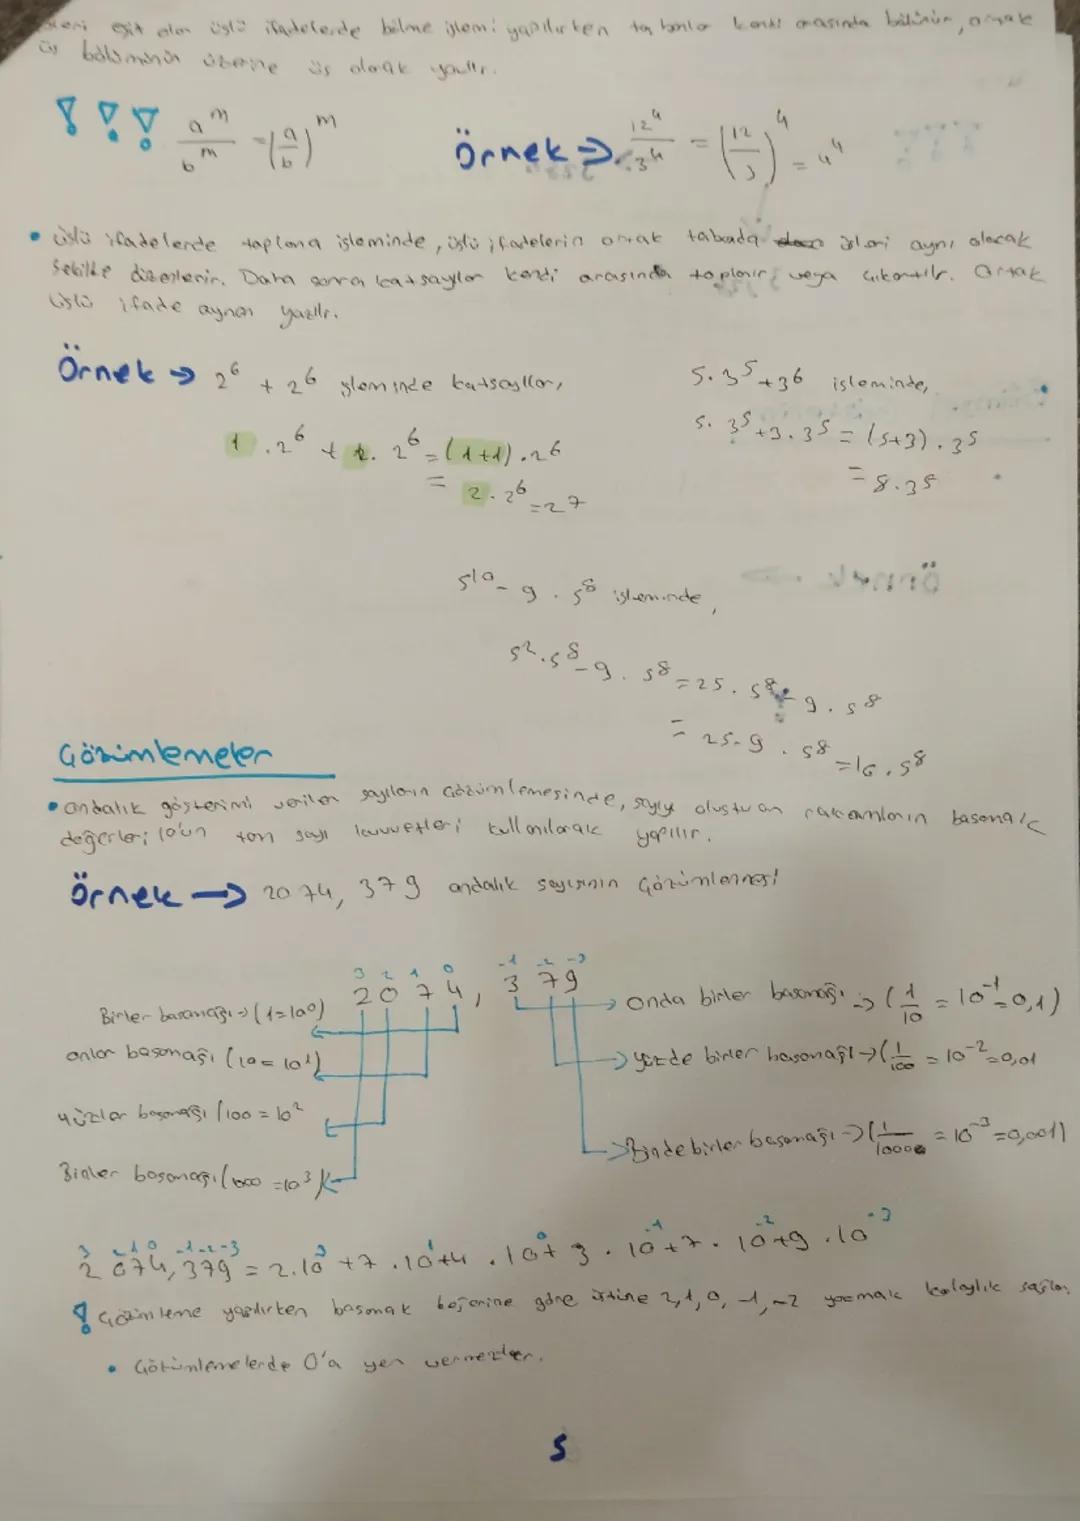 eşit olan üslü ifadelerde bölme işlemi yapılırken tabanlar kendi arasında bölünür, ortak
üs bölümünün üzerine üs olarak yazılır.
a^m / b^m = (a/b)^m
Örnek → 12^4 / 3^4 = (12/3)^4 = 4^4
• üslü ifadelerde toplama işleminde, üslü ifadelerin ortak tabanda üsleri aynı olacak
şekilde düzenlenir. Daha sonra katsayılar kendi arasında toplanır veya çıkartılır. Ortak
üslü ifade aynen yazılır.
Örnek → 2^6 + 2^6 işleminde katsayılar,
1 . 2^6 + 1 . 2^6 = (1+1) . 2^6
= 2 . 2^6 = 2^7
5 . 3^5 + 3^6 işleminde,
5 . 3^5 + 3 . 3^5 = (5+3) . 3^5
= 8 . 3^5
5^10 - 9 . 5^8 işleminde,
5^2 . 5^8 - 9 . 5^8 = 25 . 5^8 - 9 . 5^8
= 25-9 . 5^8 = 16 . 5^8
Çözümlemeler
• ondalık gösterimi verilen sayıların çözümlemesinde, sayıyı oluşturan rakamların basamak
değerleri 10'un tam sayı kuvvetleri kullanılarak yapılır.
Örnek → 2074,379 ondalık sayısının çözümlenmesi
3 2 1 0 -1 -2 -3
2 0 7 4 , 3 7 9
Birler basamağı → (1=10^0)
onlar basamağı (10=10^1)
yüzler basamağı (100=10^2
Binler basamağı (1000=10^3)
Onda birler basamağı → (1/10 = 10^-1 = 0,1)
yüzde birler basamağı → (1/100 = 10^-2 = 0,01
Binde birler basamağı → (1/1000 = 10^-3 = 0,001)
3 2 1 0 -1 -2 -3
2 0 7 4, 3 7 9 = 2 . 10^3 + 7 . 10^1 + 4 . 10^0 + 3 . 10^-1 + 7 . 10^-2 + 9 . 10^-3
! Çözümleme yapılırken basamak göre üstüne 2, 1, 0, -1, -2 yazmak kolaylık sağlar.
• Çözümlemelerde 0'a yer vermezler.
5